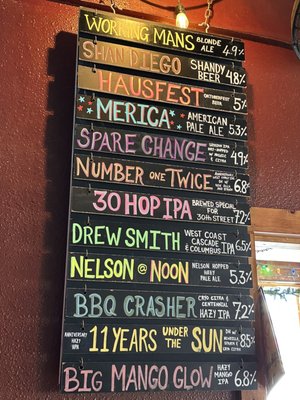 WORKING MANS BLONDE ALE 4.9%
SHAN DIEGO SHANDY BEER 4.8%
HAUSFEST OKTOBERFEST BEER 5%
MERICA AMERICAN PALE ALE 5.3%
SPARE CHANGE 4.9%
NUMBER ONE TWICE 6.8%
30 HOP IPA BREWED SPECIAL FOR 30TH STREET 7.2%
DREW SMITH WEST COAST CASCADE & COLUMBUS IPA 6.5%
NELSON @ NOON NELSON HOPPED HAZY PALE ALE 5.3%
BBQ CRASHER CRYO CITRA & CENTENNIAL HAZY IPA 7.2%
ANNIVERSARY HAZY IPA 11 YEARS UNDER THE SUN 8.5%
BIG MANGO GLOW HAZY MANGO IPA 6.8%